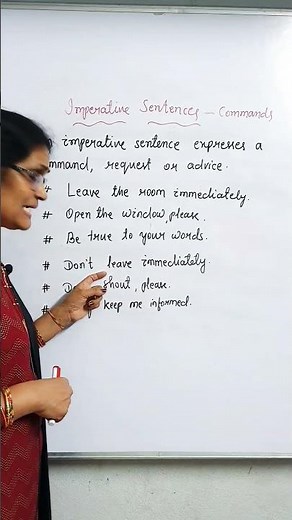 Imperative Sentences - Commands
imperative sentence expresses a
mmand, request or advice.
# Leave the room immediately.
# Open the window, please.
# Be true to your words.
# Don't leave immediately.
# D shout, please.
# keep me informed.